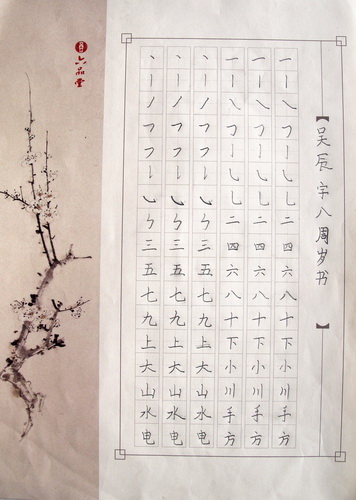 【吴辰宇八周岁书】
一丨㇏二四六八十下小川手方
一丨㇏二四六八十下小川手方
一丨㇏二四六八十下小川手方
丶丨丿三五七九上大山水电
丶丨丿三五七九上大山水电
丶丨丿三五七九上大山水电
六品堂